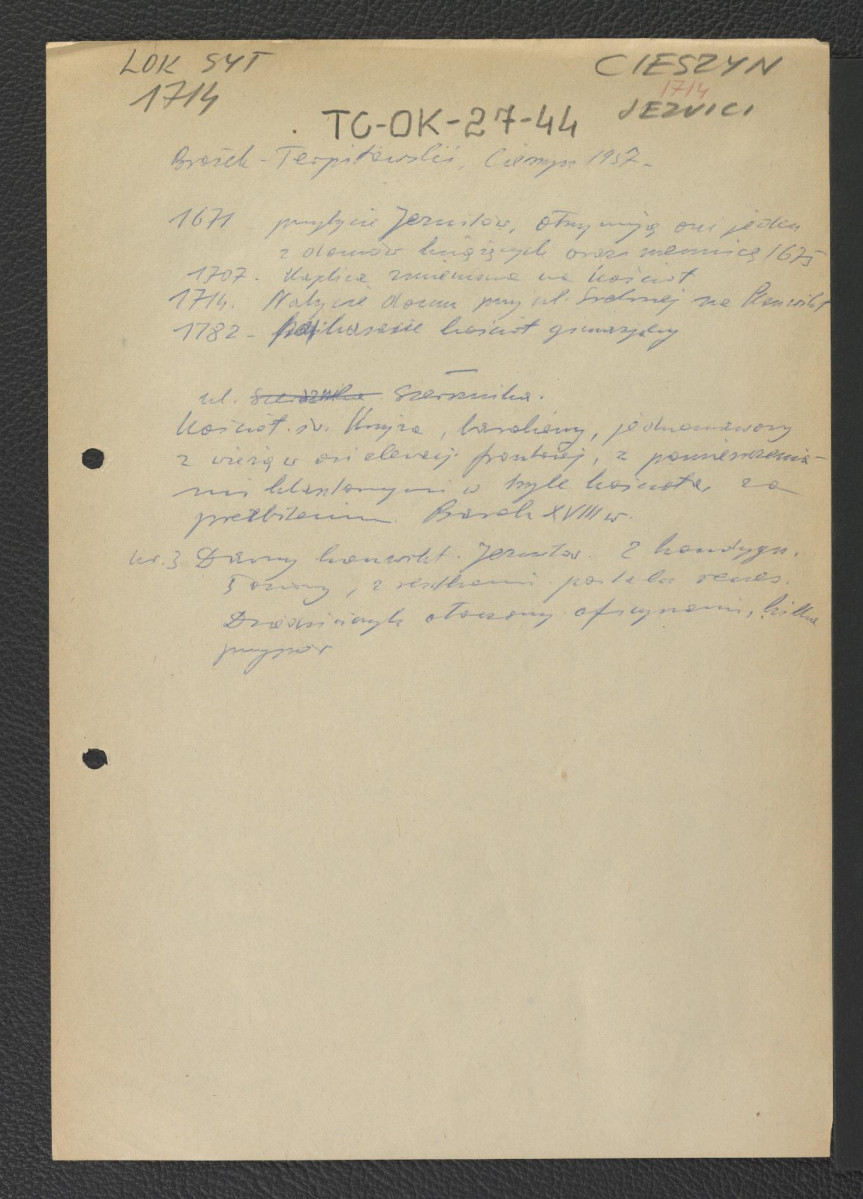 LOK SYT
1714
CIESZYN
1714
JEZUICI
TC-OK-27-44
Brożek - Terpiłowski, Cieszyn 1957.
1671 przybycie Jezuitów, otrzymują oni jeden
z domów książęcych oraz mennicę 1675
1707. Kaplica zmieniona na kościół
1714. Nabycie domu przy ul. Srebrnej na Konwikt
1782 - kościół gimnazjalny
ul. Szersznika.
Kościół św. Krzyża, barokowy, jednonawowy
z wieżą w osi elewacji frontowej, z pomieszczenia-
mi klasztornymi w tyle kościoła, za
prezbiterium. Barok XVIII w.
nr. 3 Dawny konwikt Jezuitów. 2 kondygn.
5 osiowy, z resztkami portalu renes.
Dziedzińczyk otoczony oficynami, kilka
przypór